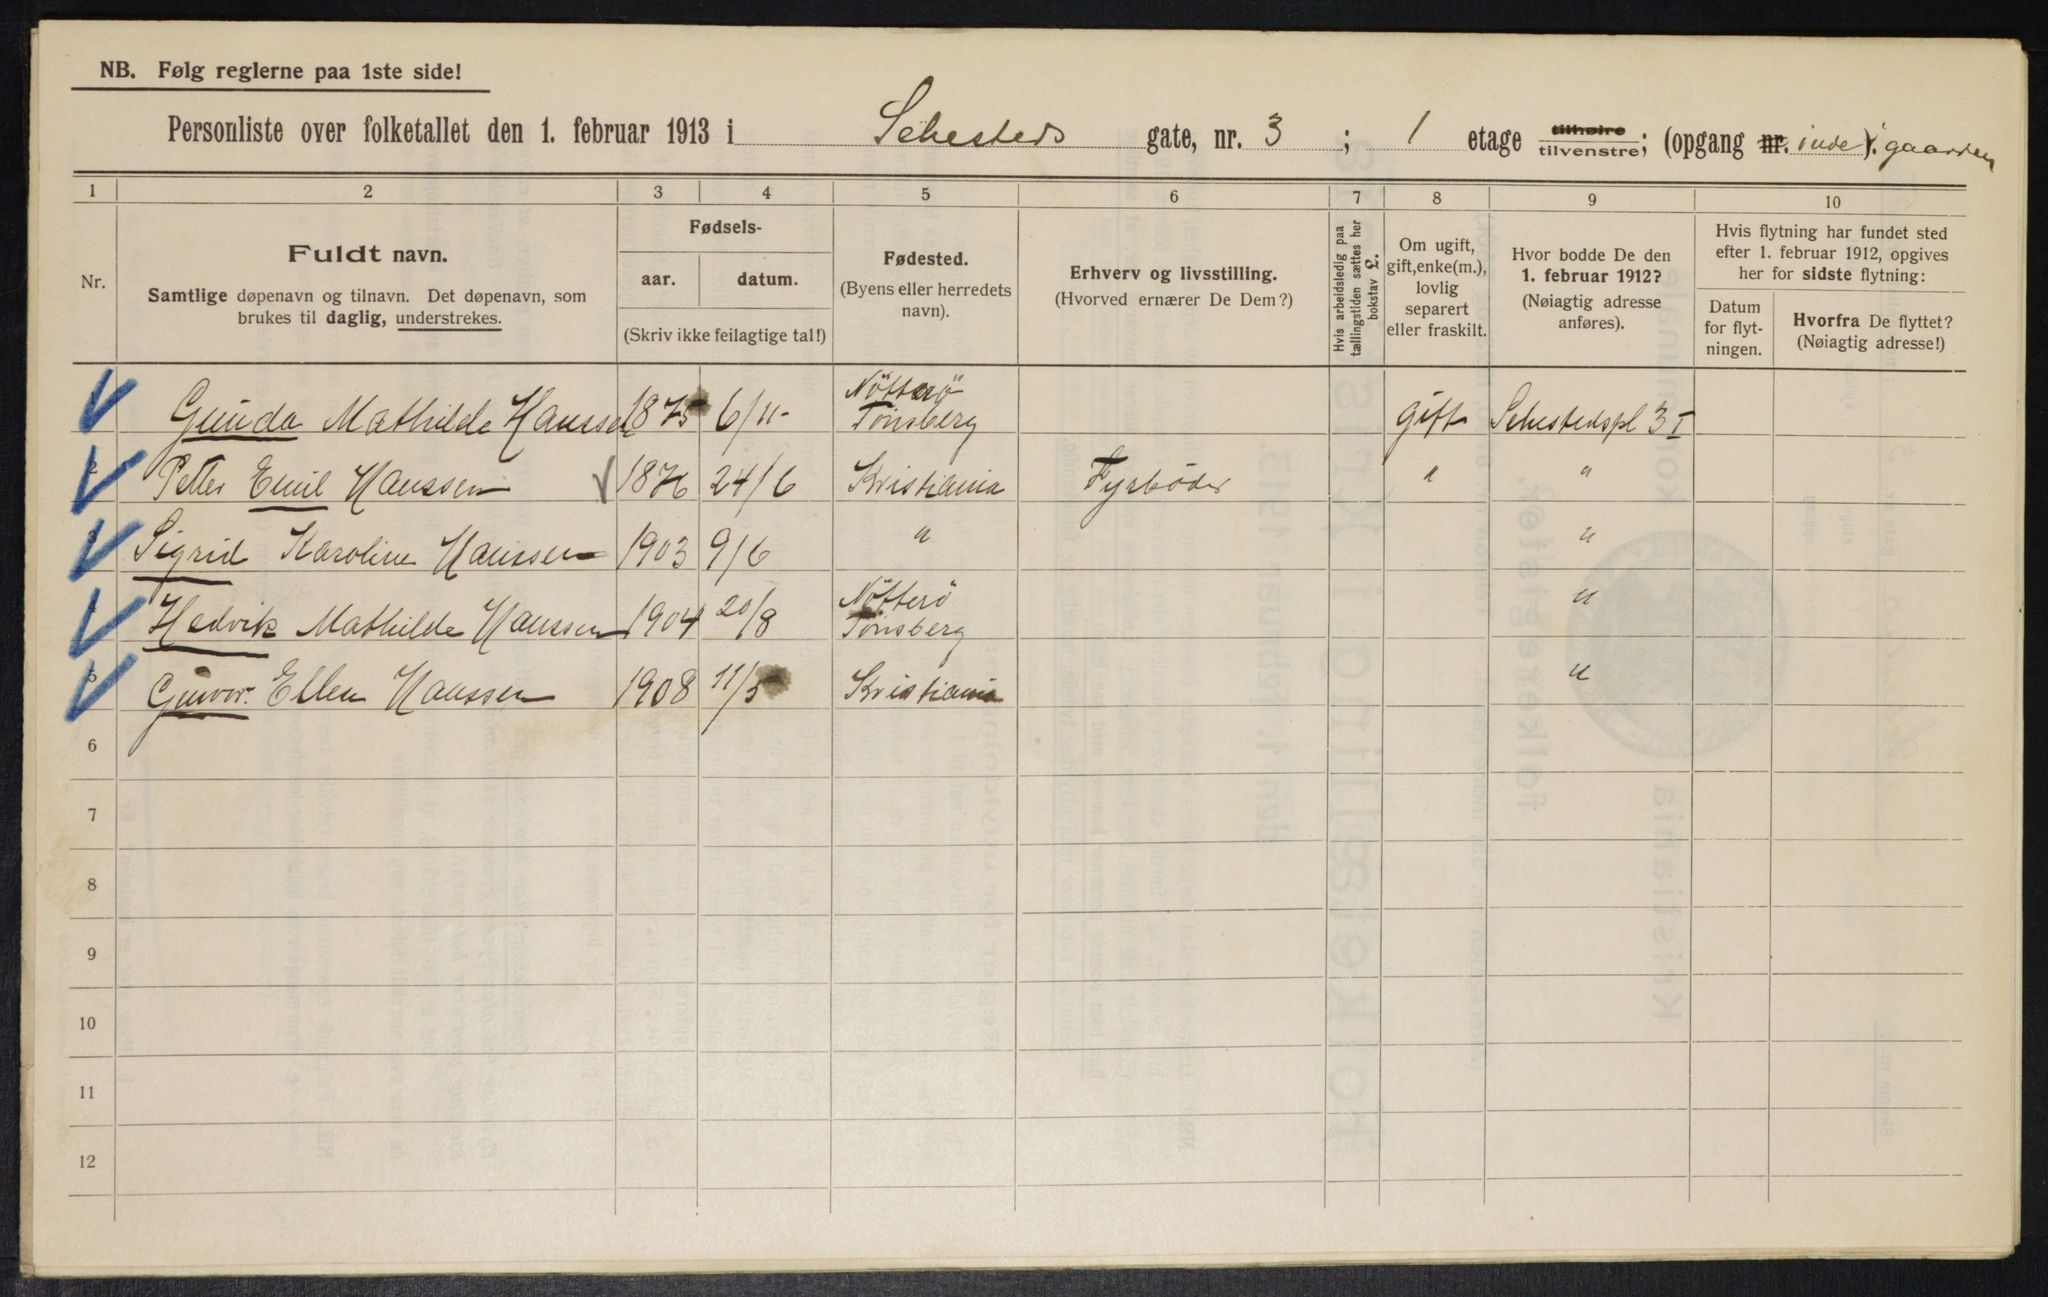 NB. Følg reglerne paa 1ste side!
Personliste over folketallet den 1. februar 1913 i Sehesteds gate, nr. 3 ; 1 etage tilhøire tilvenstre; (opgang nr. inde i gaarden).
1 2 3 4 5 6 7 8 9 10
Nr.
Fuldt navn.
Samtlige døpenavn og tilnavn. Det døpenavn, som
brukes til daglig, understrekes.
Fødsels-
aar. datum.
(Skriv ikke feilagtige tal!)
Fødested.
(Byens eller herredets
navn).
Erhverv og livsstilling.
(Hvorved ernærer De Dem?)
Hvis arbeidsledig paa
tællingstiden sættes her
bokstav £.
Om ugift,
gift, enke(m.),
lovlig
separert
eller fraskilt.
Hvor bodde De den
1. februar 1912?
(Nøiagtig adresse
anføres).
Hvis flytning har fundet sted
efter 1. februar 1912, opgives
her for sidste flytning:
Datum
for flyt-
ningen.
Hvorfra De flyttet?
(Nøiagtig adresse!)
Gunda Mathilde Hanssen 1875 6/11 Nötterö Tönsberg gift Sehestedspl 3 I
2 Petter Emil Hanssen 1876 24/6 Kristiania Fyrböder " "
3 Sigrid Karoline Hanssen 1903 9/6 " "
4 Hedvik Mathilde Hanssen 1904 20/8 Nötterö Tönsberg "
5 Gunvor Ellen Hanssen 1908 11/5 Kristiania "
6
7
8
9
10
11
12